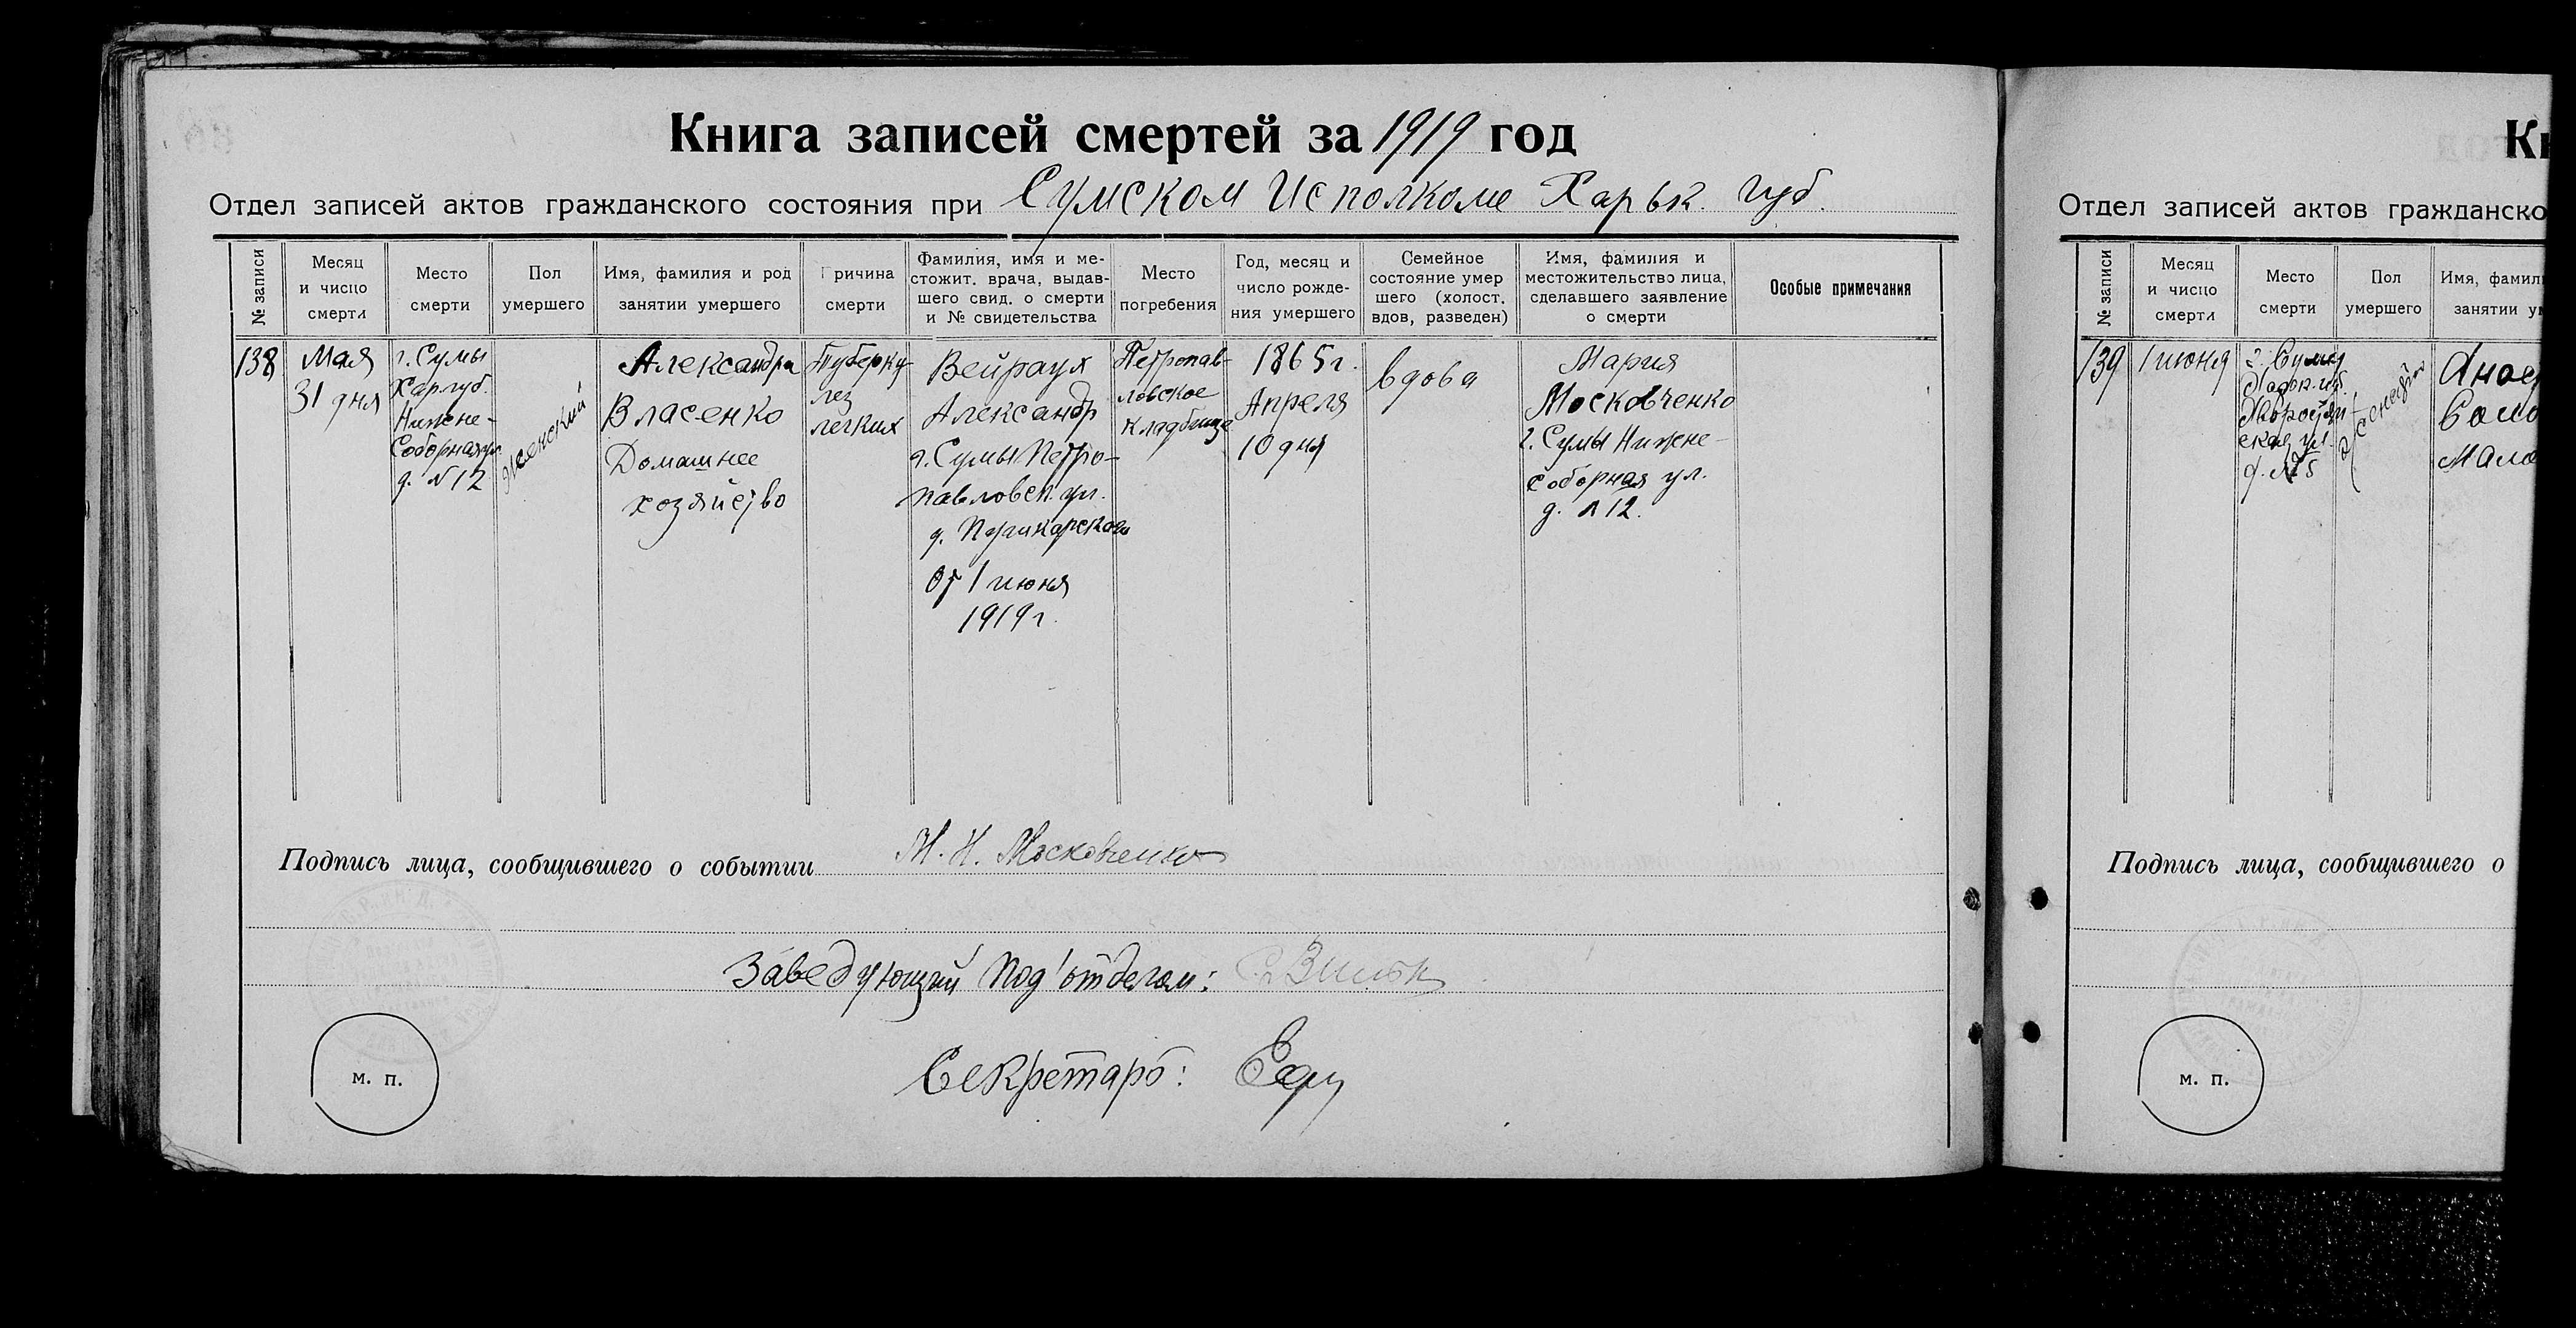 Книга записей смертей за 1919 год
Отдел записей актов гражданского состояния при Сумском Исполкоме Харьк. губ.
№ записи
Месяц
и число
смерти
Место
смерти
Пол
умершего
Имя, фамилия и род
занятии умершего
Причина
смерти
Фамилия, имя и ме-
стожит. врача, выдав-
шего свид. о смерти
и № свидетельства
Место
погребения
Год, месяц и
число рожде-
ния умершего
Семейное
состояние умер
шего (холост.
вдов, разведен)
Имя, фамилия и
местожительство лица,
сделавшего заявление
о смерти
Особые примечания
138
Мая
31 дня
г. Сумы
Хар. губ.
Нижне-
Соборная ул.
д. № 12
Женский
Александра
Власенко
Домашнее
хозяйство
Туберку-
лез
легких
Вейраух
Александр
г. Сумы Петро-
павловск. ул.
д.
От 1 июня
1919 г.
Петропав-
ловское
кладбище
1865 г.
Апреля
10 дня
вдова
Мария
Московченко
г. Сумы Нижне-
соборная ул.
д. № 12.
Подпись лица, сообщившего о событии М. И. Московченко
Заведующий Под'отделом:
Секретарь:
м. п.
Кн
Отдел записей актов гражданско
№ записи
Месяц
и число
смерти
Место
смерти
Пол
умершего
Имя, фамил
занятии у
139
1 июня
г. Сумы
Харьк. губ.
ская ул.
д. № 5
Женский
Подпись лица, сообщившего о
м. п.